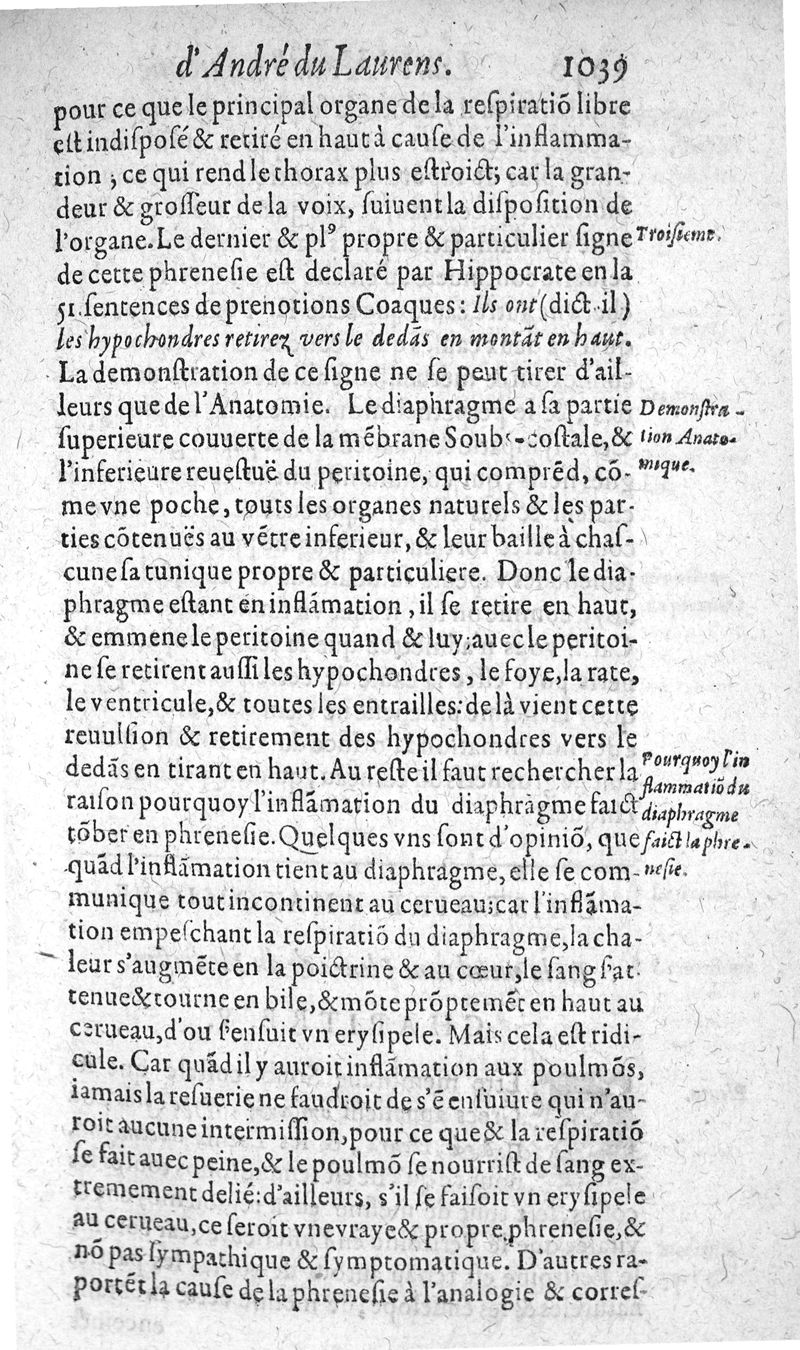 d'André du Laurens. 1039
pour ce que le principal organe de la reſpiratiõ libre
eſt indiſpoſé & retiré en haut à cauſe de l'inflamma-
tion ; ce qui rend le thorax plus eſtroict; car la gran-
deur & groſſeur de la voix, ſuiuent la diſpoſition de
l'organe. Le dernier & plꝰ propre & particulier ſigne
Troiſieme.
de cette phreneſie eſt declaré par Hippocrate en la
51. ſentences de prenotions Coaques: Ils ont (dict il)
les hypochondres retirez vers le dedãs en montãt en haut.
La demonſtration de ce ſigne ne ſe peut tirer d'ail-
leurs que de l'Anatomie. Le diaphragme a ſa partie
ſuperieure couuerte de la mẽbrane Soubs-coſtale, &
l'inferieure reueſtuë du peritoine, qui comprẽd, cõ-
Demonſtra-
tion Anato-
mique.
me vne poche, touts les organes naturels & les par-
ties cõtenuës au vẽtre inferieur, & leur baille à chaſ-
cune ſa tunique propre & particuliere. Donc le dia-
phragme eſtant en inflãmation, il ſe retire en haut,
& emmene le peritoine quand & luy; auec le peritoi-
ne ſe retirent auſſi les hypochondres, le foye, la rate,
le ventricule, & toutes les entrailles: de là vient cette
reuulſion & retirement des hypochondres vers le
dedãs en tirant en haut. Au reſte il faut rechercher la
raiſon pourquoy l'inflãmation du diaphragme faict
tõber en phreneſie. Quelques vns ſont d'opiniõ, que
quãd l'inflãmation tient au diaphragme, elle ſe com-
Pourquoy l'in
flammatiõ du
diaphragme
faict la phre-
neſie.
munique tout incontinent au cerueau; car l'inflãma-
tion empeſchant la reſpiratiõ du diaphragme, la cha-
leur s'augmẽte en la poictrine & au cœur, le ſang ſ'at-
tenue & tourne en bile, & mõte prõptemẽt en haut au
cerueau, d'ou ſ'enſuit vn eryſipele. Mais cela eſt ridi-
cule. Car quãd il y auroit inflãmation aux poulmõs,
iamais la reſuerie ne faudroit de s'ẽ enſuiure qui n'au-
roit aucune intermiſſion, pour ce que & la reſpiratiõ
ſe fait auec peine, & le poulmõ ſe nourriſt de ſang ex-
tremement delié: d'ailleurs, s'il ſe faiſoit vn eryſipele
au cerueau, ce ſeroit vne vraye & propre phreneſie, &
nõ pas ſympathique & ſymptomatique. D'autres ra-
portẽt la cauſe de la phreneſie à l'analogie & correſ-